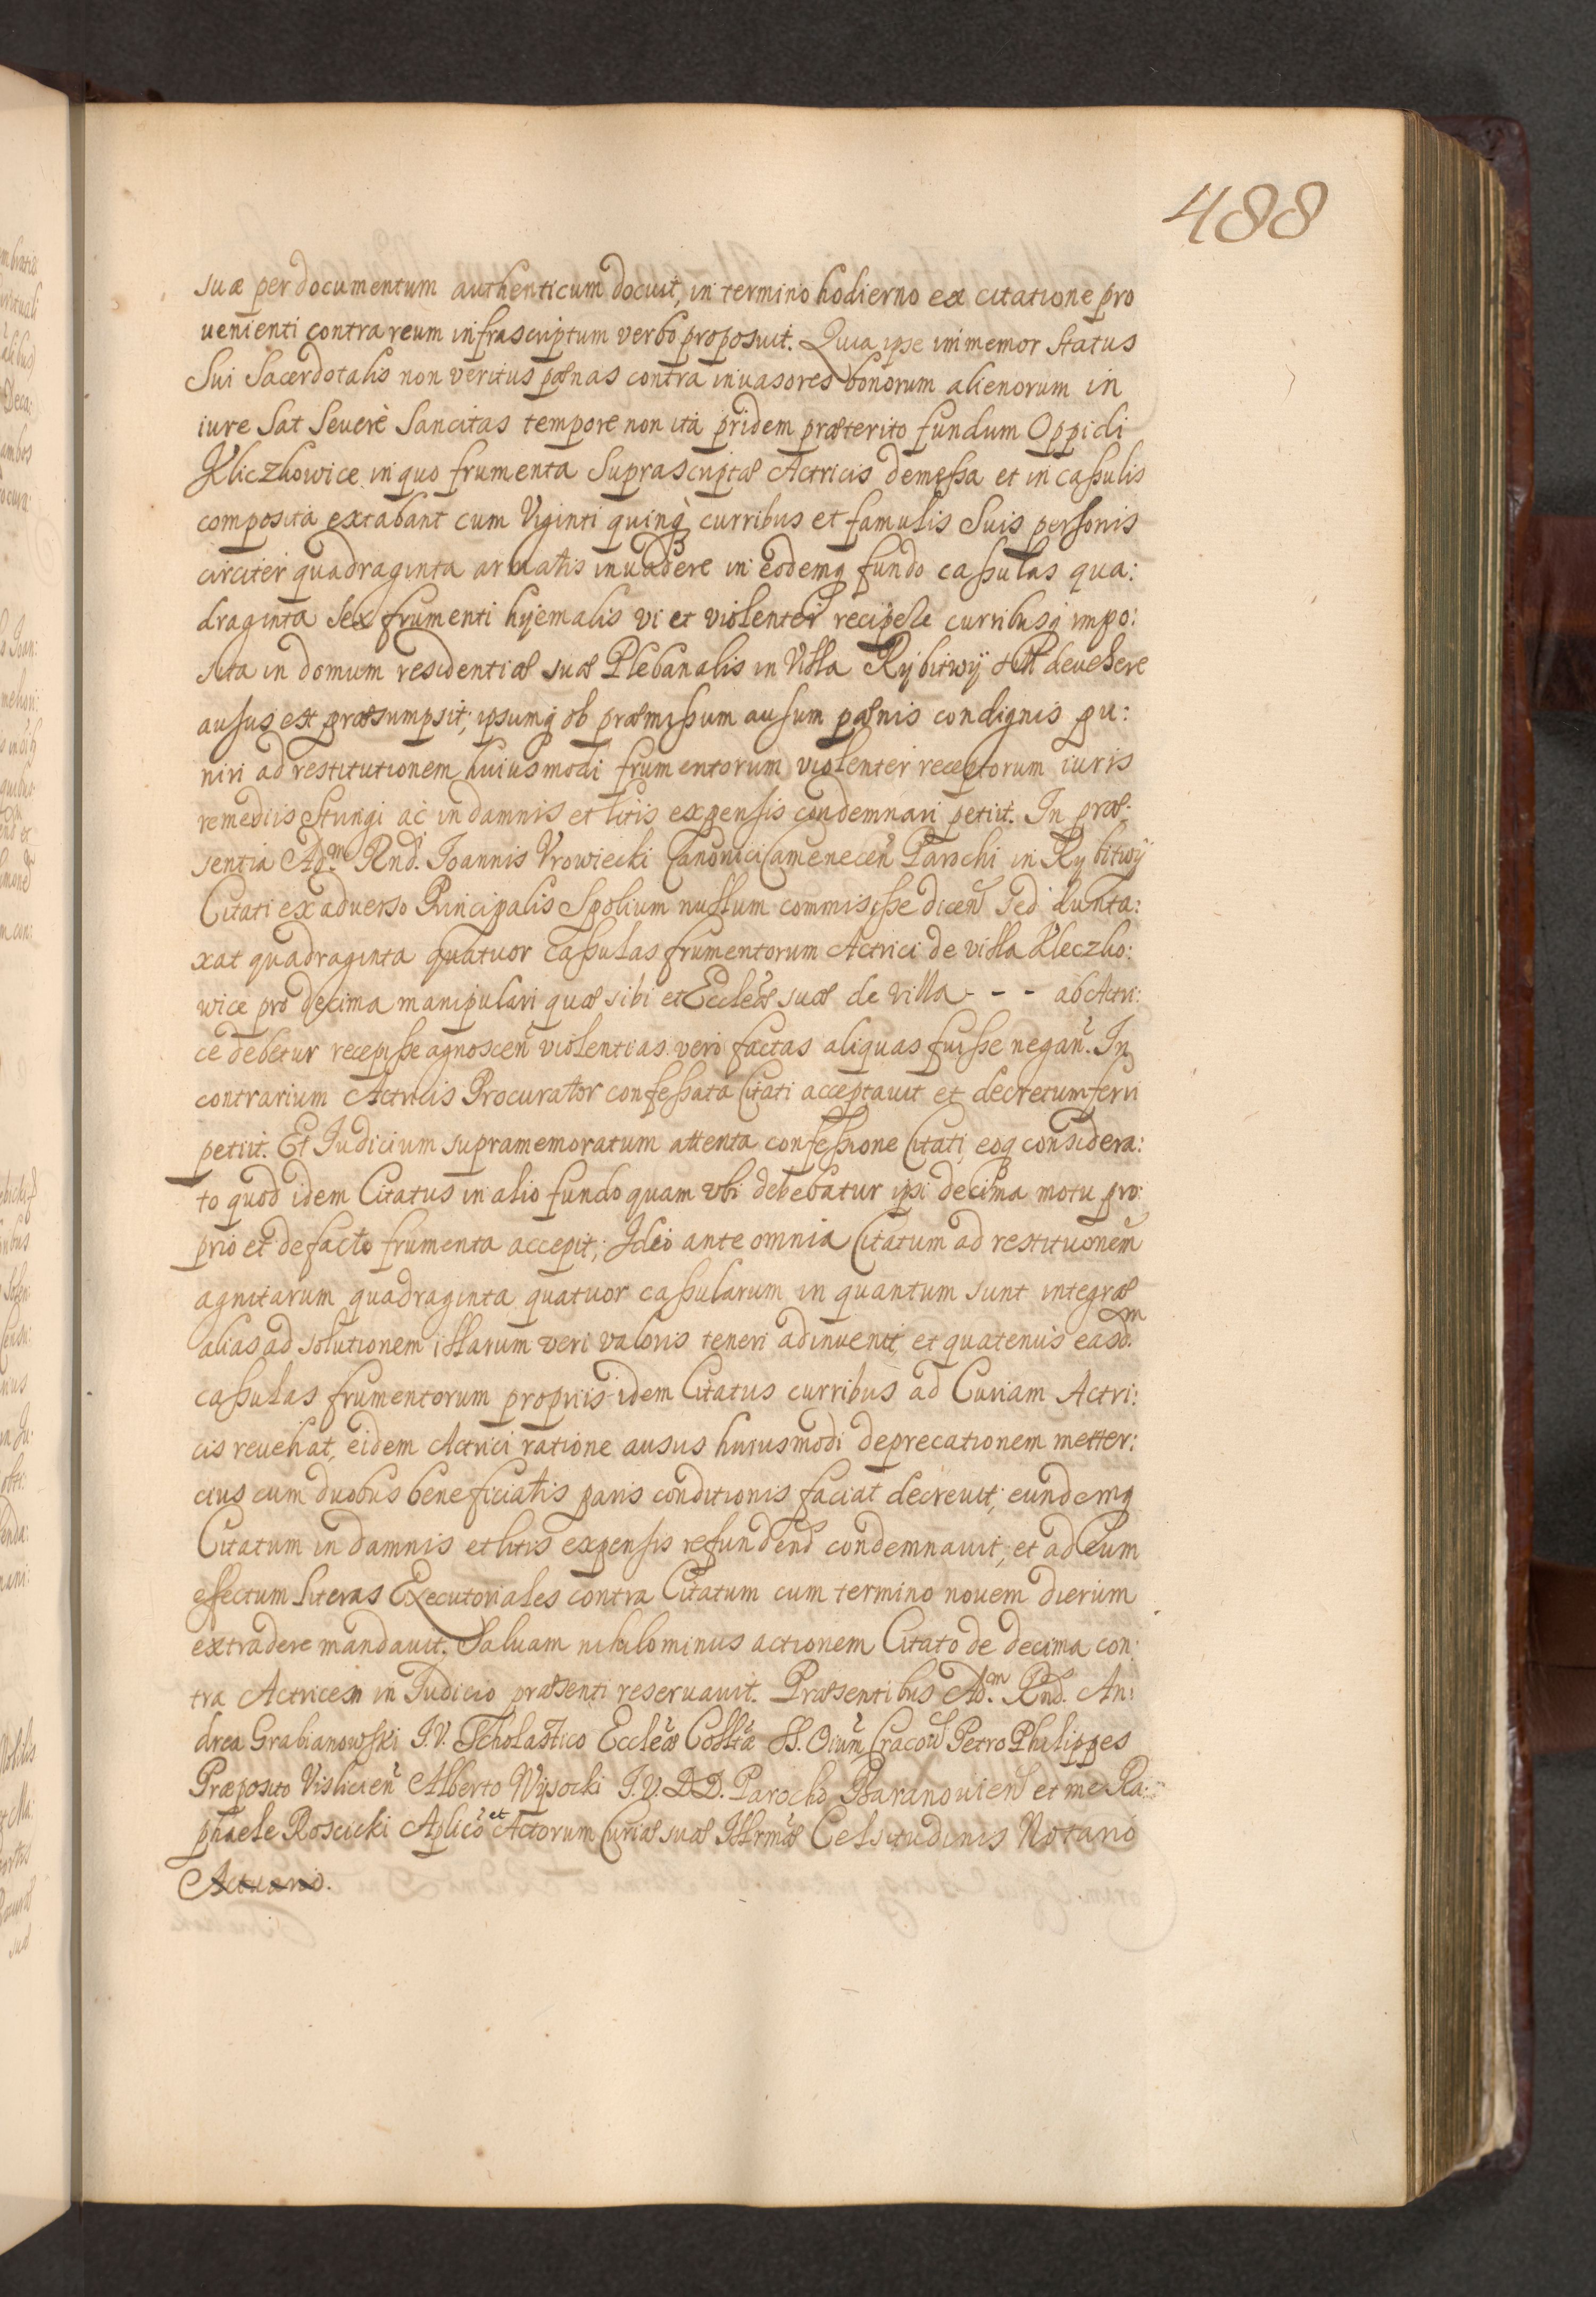 488
suæ per documentum authenticum docuit, in termino hodierno ex citatione pro
uenienti contra reum infrascriptum verbo proposuit. Quia ipse immemor Status
Sui Sacerdotalis non veritus pœnas contra inuasores bonorum alienorum in
iure Sat Seuerè Sancitas tempore non ita pridem præterito fundum Oppidi
Kliczkowice in quo frumenta Suprascriptæ Actricis demeßa et in caßulis
composita extabant cum Viginti quinq̨ curribus et famulis Suis personis
circiter quadraginta armatis inuadere in eodemq̨ fundo caßulas qua:
draginta sex frumenti hyemalis vi et violenter recipere curribusq̨ impo:
sita in domum residentiæ suæ Plebanalis in Villa Rybitwÿ deuehere
ausus est præsumpsit; ipsumq̨ ob præmißum ausum pœnis condignis pu:
niri ad restitutionem huiusmodi frumentorum violenter receptorum iuris
remediis Stringi ac in damnis et litis expensis condemnari petiit. In præ:
sentia Ad.m Rnd. Joannis Vrowiecki Canonici Camenecen̄ Parochi in Rybitwÿ
Citati ex aduerso Principalis Spolium nullum commisiße dicen̄ sed dunta:
xat quadraginta quatuor caßulas frumentorum Actrici de villa Kleczko:
wice pro decima manipulari quæ sibi et Eccle͠æ suæ de villa - - - ab Actri:
ce debetur recepiße agnoscen̄ violentias vero factas aliquas fuiße negan̄. In
contrarium Actricis Procurator confeßata Citati acceptauit et decretum ferri
petiit. Et Iudicium supramemoratum attenta confeßione Citati, eoq̨ considera:
to quod idem Citatus in alio fundo quam vbi debebatur ipsi decima motu pro:
prio et defacto frumenta accepit; Ideo ante omnia Citatum ad restituonēm
agnitarum quadraginta quatuor caßularum in quantum sunt integræ
alias ad solutionem illarum veri valoris teneri adinuenit, et quatenus easd.m
caßulas frumentorum propriis idem Citatus curribus ad Curiam Actri:
cis reuehat, eidem Actrici ratione ausus huiusmodi deprecationem metter:
cius cum duobus beneficiatis paris conditionis faciat decreuit; eundemq̨
Citatum in damnis et litis expensis refundend condemnauit; et ad eum
effectum literas Executoriales contra Citatum cum termino nouem dierum
extradere mandauit. Saluam nihilominus actionem Citato de decima con:
tra Actricem in Iudicio præsenti reseruauit. Præsentibus Ad.m Rnd. An:
drea Grabianowski I.V. Scholastico Eccle͠æ Coll͠tæ SS. Oium̄ Cracou̅ Petro Philippes
Præposito Vislicien̄ Alberto Wysocki I.V.D.D. Parocho Baranouien̄ et me Ra:
phaele Roscicki Aplic͠o et Actorum Curiæ suæ Illrm͠æ Celsitudinis Notario
Actuario.